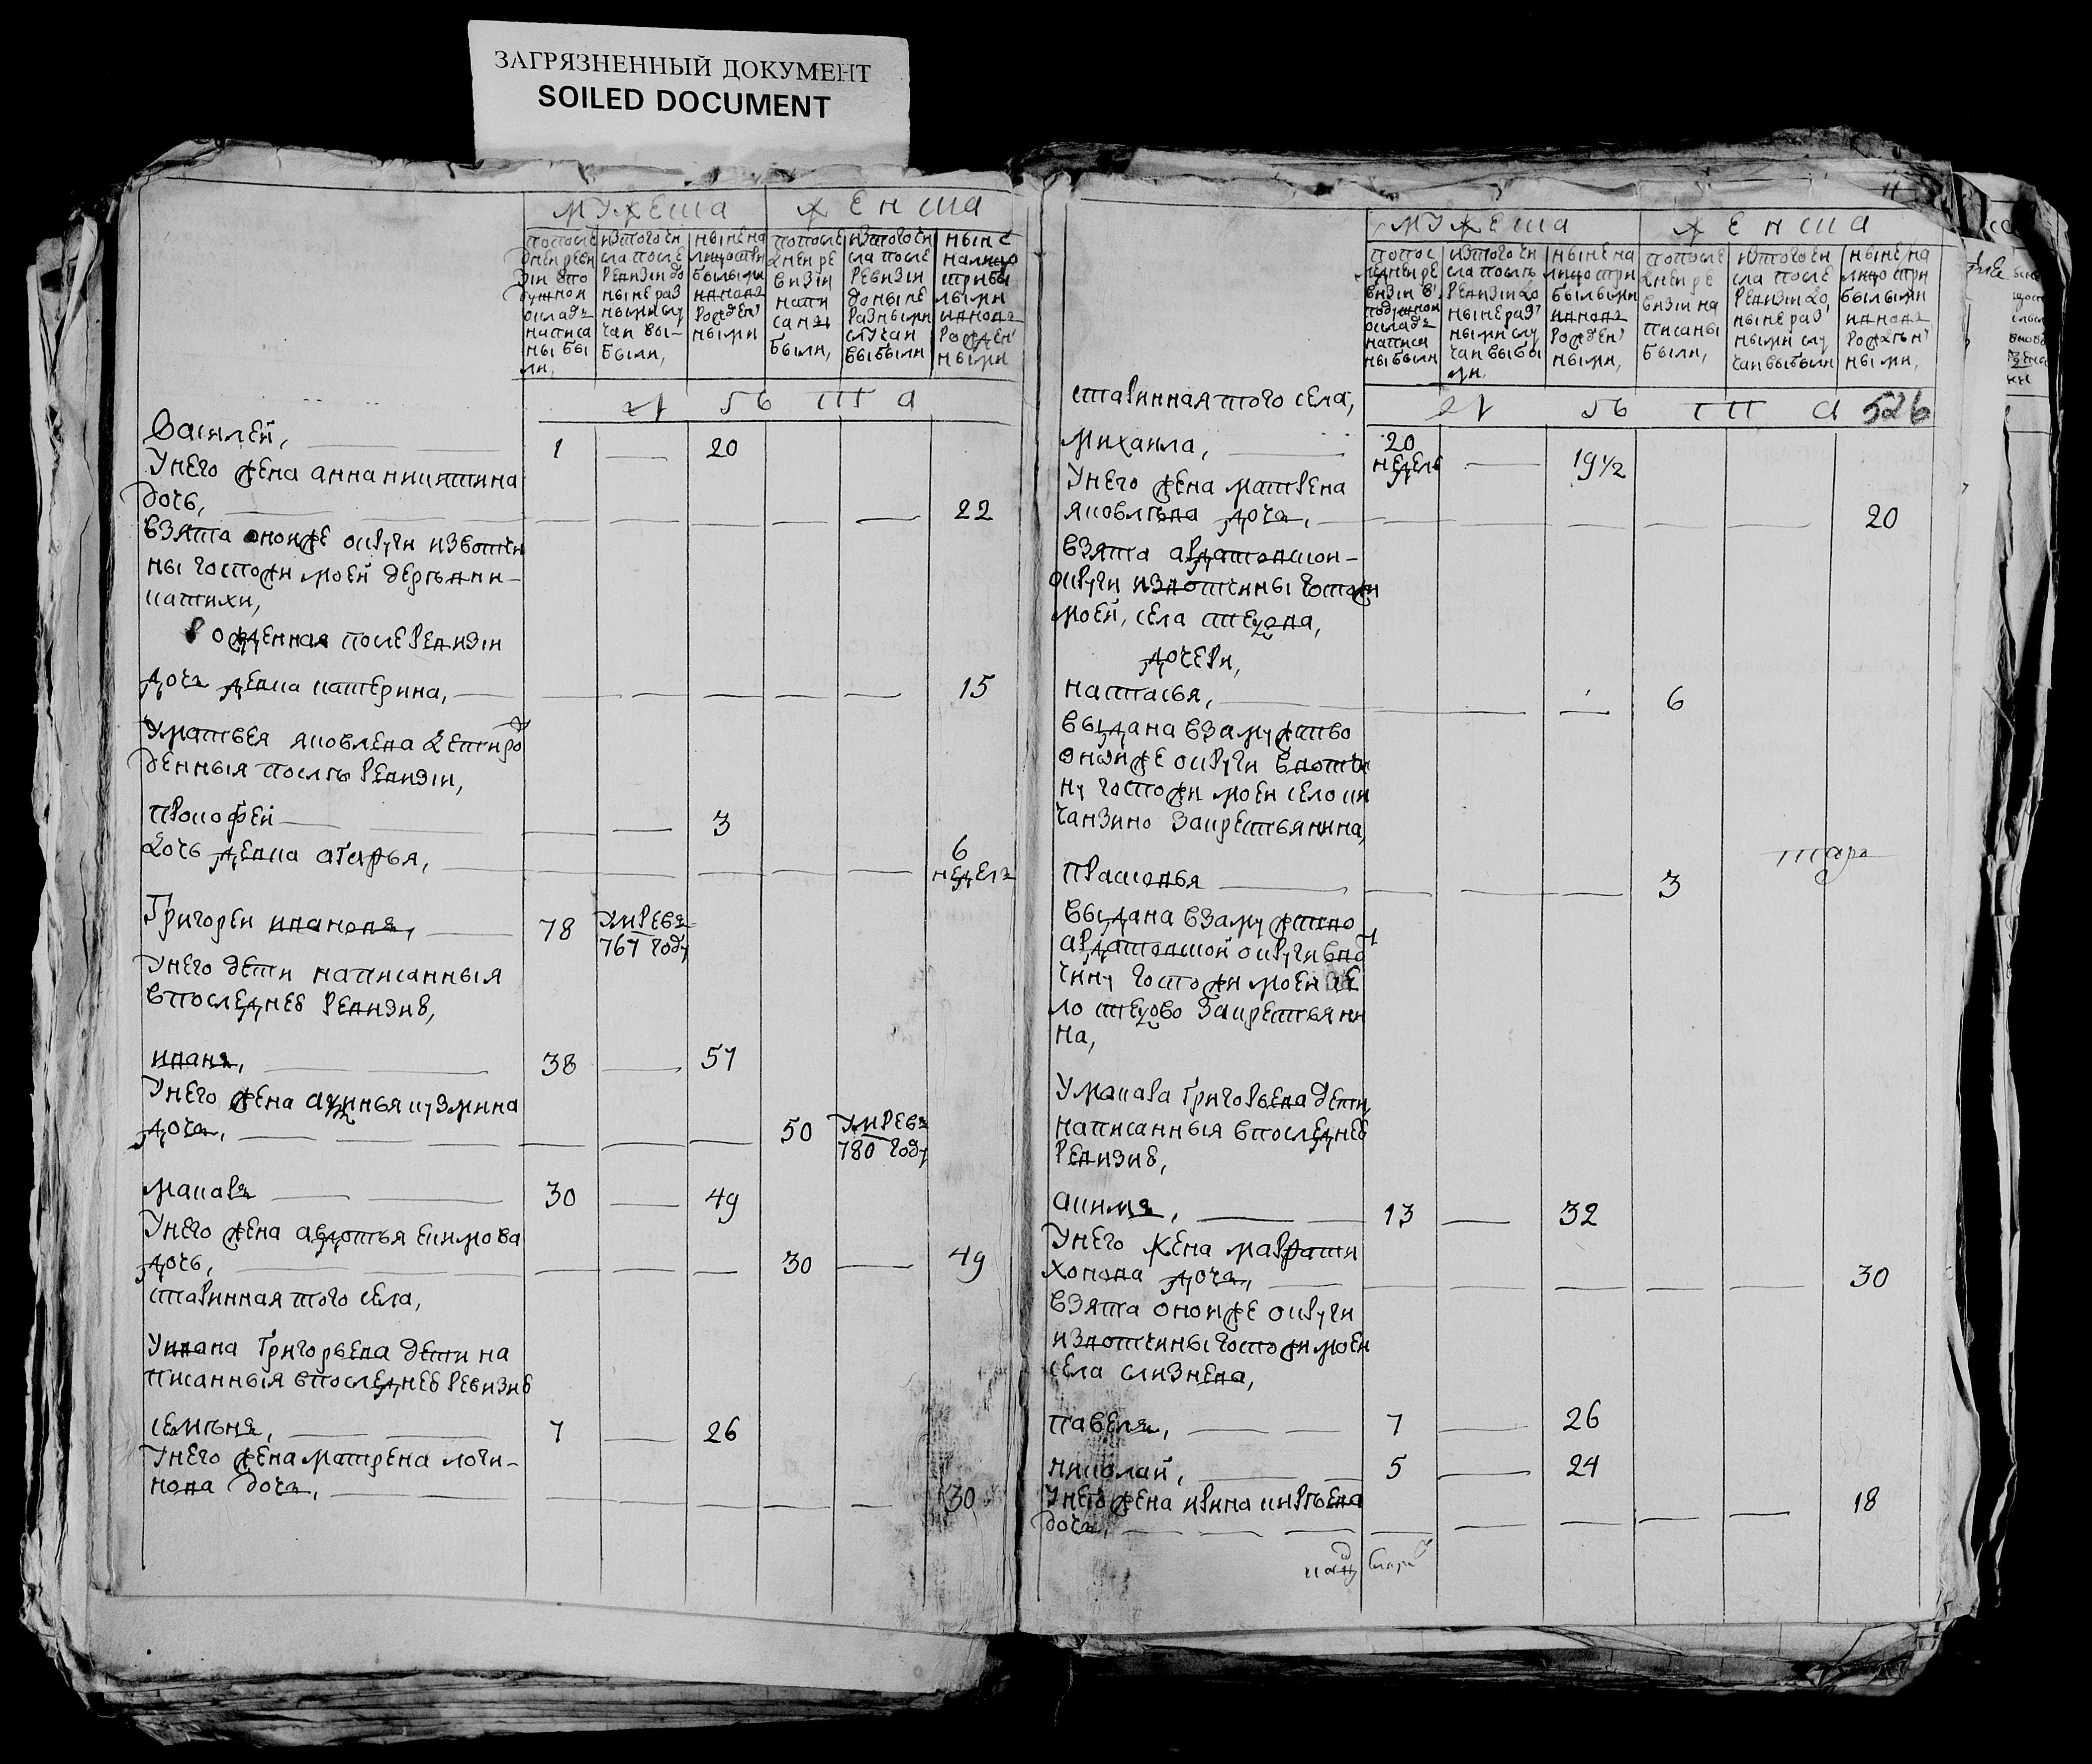 ЗАГРЯЗНЕННЫЙ ДОКУМЕНТ
SOILED DOCUMENT
мужеша
женша
попосле
дней реви
зiи
написа
ны бы
ли,
изтого чи
сла после
ревизiи до
ныне раз
ными слу
чаи вы-
были,
ныне на
лицо сти
былыми
ивновъ
рожден
ными
попосле
дней ре
визiи
напи
саны
были,
изтого чи
сла после
ревизiи
доныне
разными
случаи
выбыли
ныне
налицо
прибы
лыми
ивновъ
рожден
ными
лѣта
Василей, 1 20
Унего жена анна никитина
дочь, 22
взята оноиже округи извотчи
ны госпожи моей деревни
рожденная послеревизiи
дочь девка катерина, 15
Уматвея яковлева дети рож
денныя послѣ ревизiи,
прокофей 3
дочь девка агафья, 6
неделъ
Григореи ивановъ, 78 умре въ
767 году
Унего дети написанныя
впоследнеѣ ревизиѣ,
иванъ, 38 57
Унего жена аксинья кузмина
дочъ, 50 умре въ
780 году
макаръ 30 49
Унего жена авдотья екимова
дочь, 30 49
старинная того села,
Уивана григорьева дети на
писанныя впоследнеѣ ревизиѣ
семѣнъ, 7 26
Унего жена матрена логи-
нова дочъ, 30
мужеша
женша
попос
ледней ре
визiи в
подушной
окладъ
написа
ны были
изтого чи
сла послѣ
ревизiи до
ныне раз
ными слу
чаи выбы
ли.
ныне на
лицо при
былыми
ивновъ
рожден
ными,
попосле
дней ре
визiи на
писаны
были,
изтого чи
сла после
ревизiи до
ныне раз
ными слу
чаи выбыли
ныне на
лицо при
былыми
ивновъ
рожден
ными,
старинная того села,
лѣта 526
Михаила, 20
недель 19½
Унего жена матрена
яковлѣва дочъ, 20
взята ардатовской
округи извотчины госпожи
моей, села
дочери,
настасья, 6
выдана взамужство
оноиже округи ввотчи
ну госпожи моеи село ки
чанзино закрестьянина,
прасковья 3
выдана взамужство
ардатовской округи ввот
чину госпожи моеи се
ло закрестьяни
на,
Умакара григорьева дети,
написанныя впоследнеѣ
ревизиѣ,
акимъ, 13 32
Унего жена мавра ти
хонова дочъ, 30
взята оноиже округи
извотчины госпожи моеи
села слизнева,
павелъ, 7 26
николаи, 5 24
Унего жена ирина кирѣева
дочъ, 18